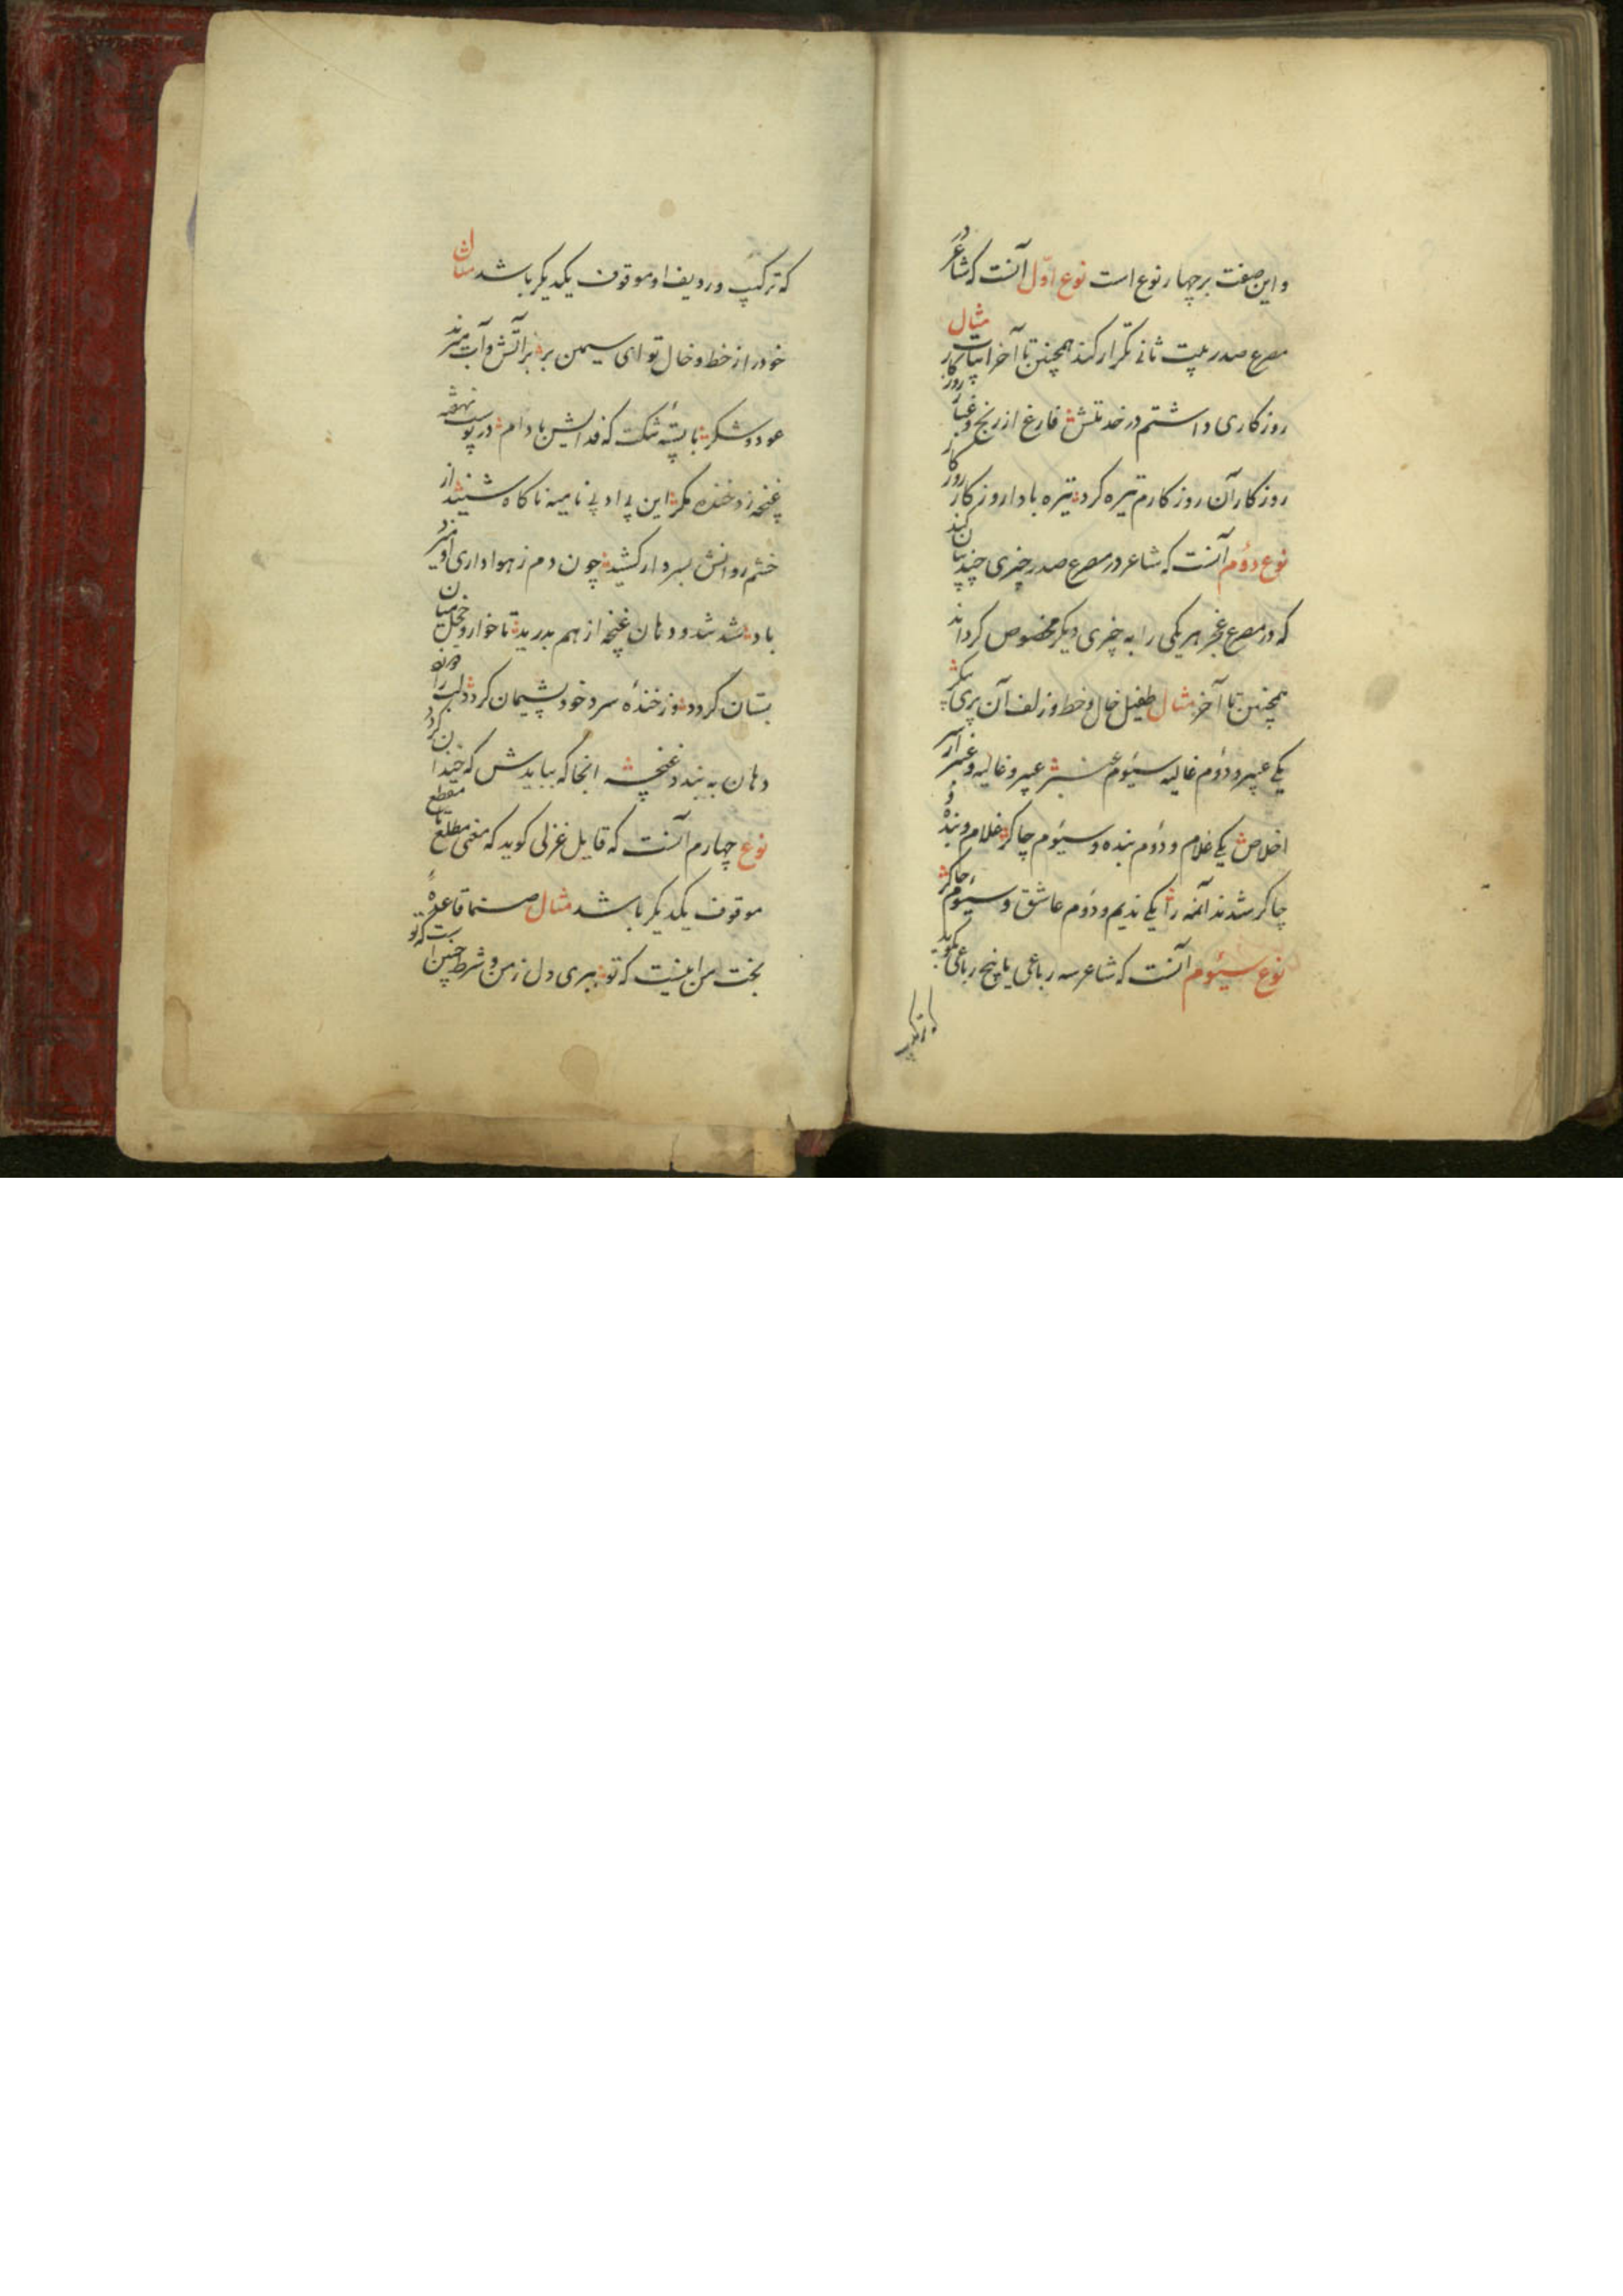 و این صفت بر چهار نوع است نوع اوّل آنست که شاعر در
مصرع صدر بیت ثانی تکرار کند همچنین تا آخر ابیات مثال
روزکاری داشتم در خدمتش فارغ از رنج و غبار روزکار
روزکار آن روزکارم تیره کرد تیره بادا روزکار روزکار
نوع دوُم آنست که شاعر در مصرع صدر چیزی چند بیان کند
که در مصرع عجز هر یکی را به چیزی دیکر مخصوص کرداند
همچنین تا آخر مثال طفیل خال و خط و زلف آن پری پیکر
یکی عبیر و دوُم غالیه سیوُم عنبر عبیر و غالیه و عنبر از سر
اخلاص یکی غلام و دوُم بنده و سیوُم چاکر غلام و بنده و
چاکر شدند آنمه را یکی ندیم و دوُم عاشق و سیوُم چاکر
نوع سیوُم آنست که شاعر سه رباعی یا پنج رباعی بکوید
که ترکیب
که ترکیب و ردیف او موقوف یکدیکر باشد مثال
خود را از خط و خال تو ای سیمین بر بر آتش و آب میزند
عود و شکر با پستهٔ تنکت که فدایش بادام در پوست نهفته
غنچه زد خنده مکر این بی ادبی نامیه ناکاه شنید از
خشم روانش بسر دار کشید چون دم ز هواداری او میزد
باد شد و دهان غنچه از هم بدرید تا خوار و خجل میان
بستان کردد وز خندهٔ سرد خود پشیمان کردد دلبر
دهان به بندد غنچه انجا که ببایدش که خندان کردد
نوع چهارم آنست که قایل غزلی کوید که معنی مطلع تا مقطع
موقوف یکدیکر باشد مثال صنما قاعدهٔ
بخت من اینست که تو ببری دل ز من و شرط چنین است که تو